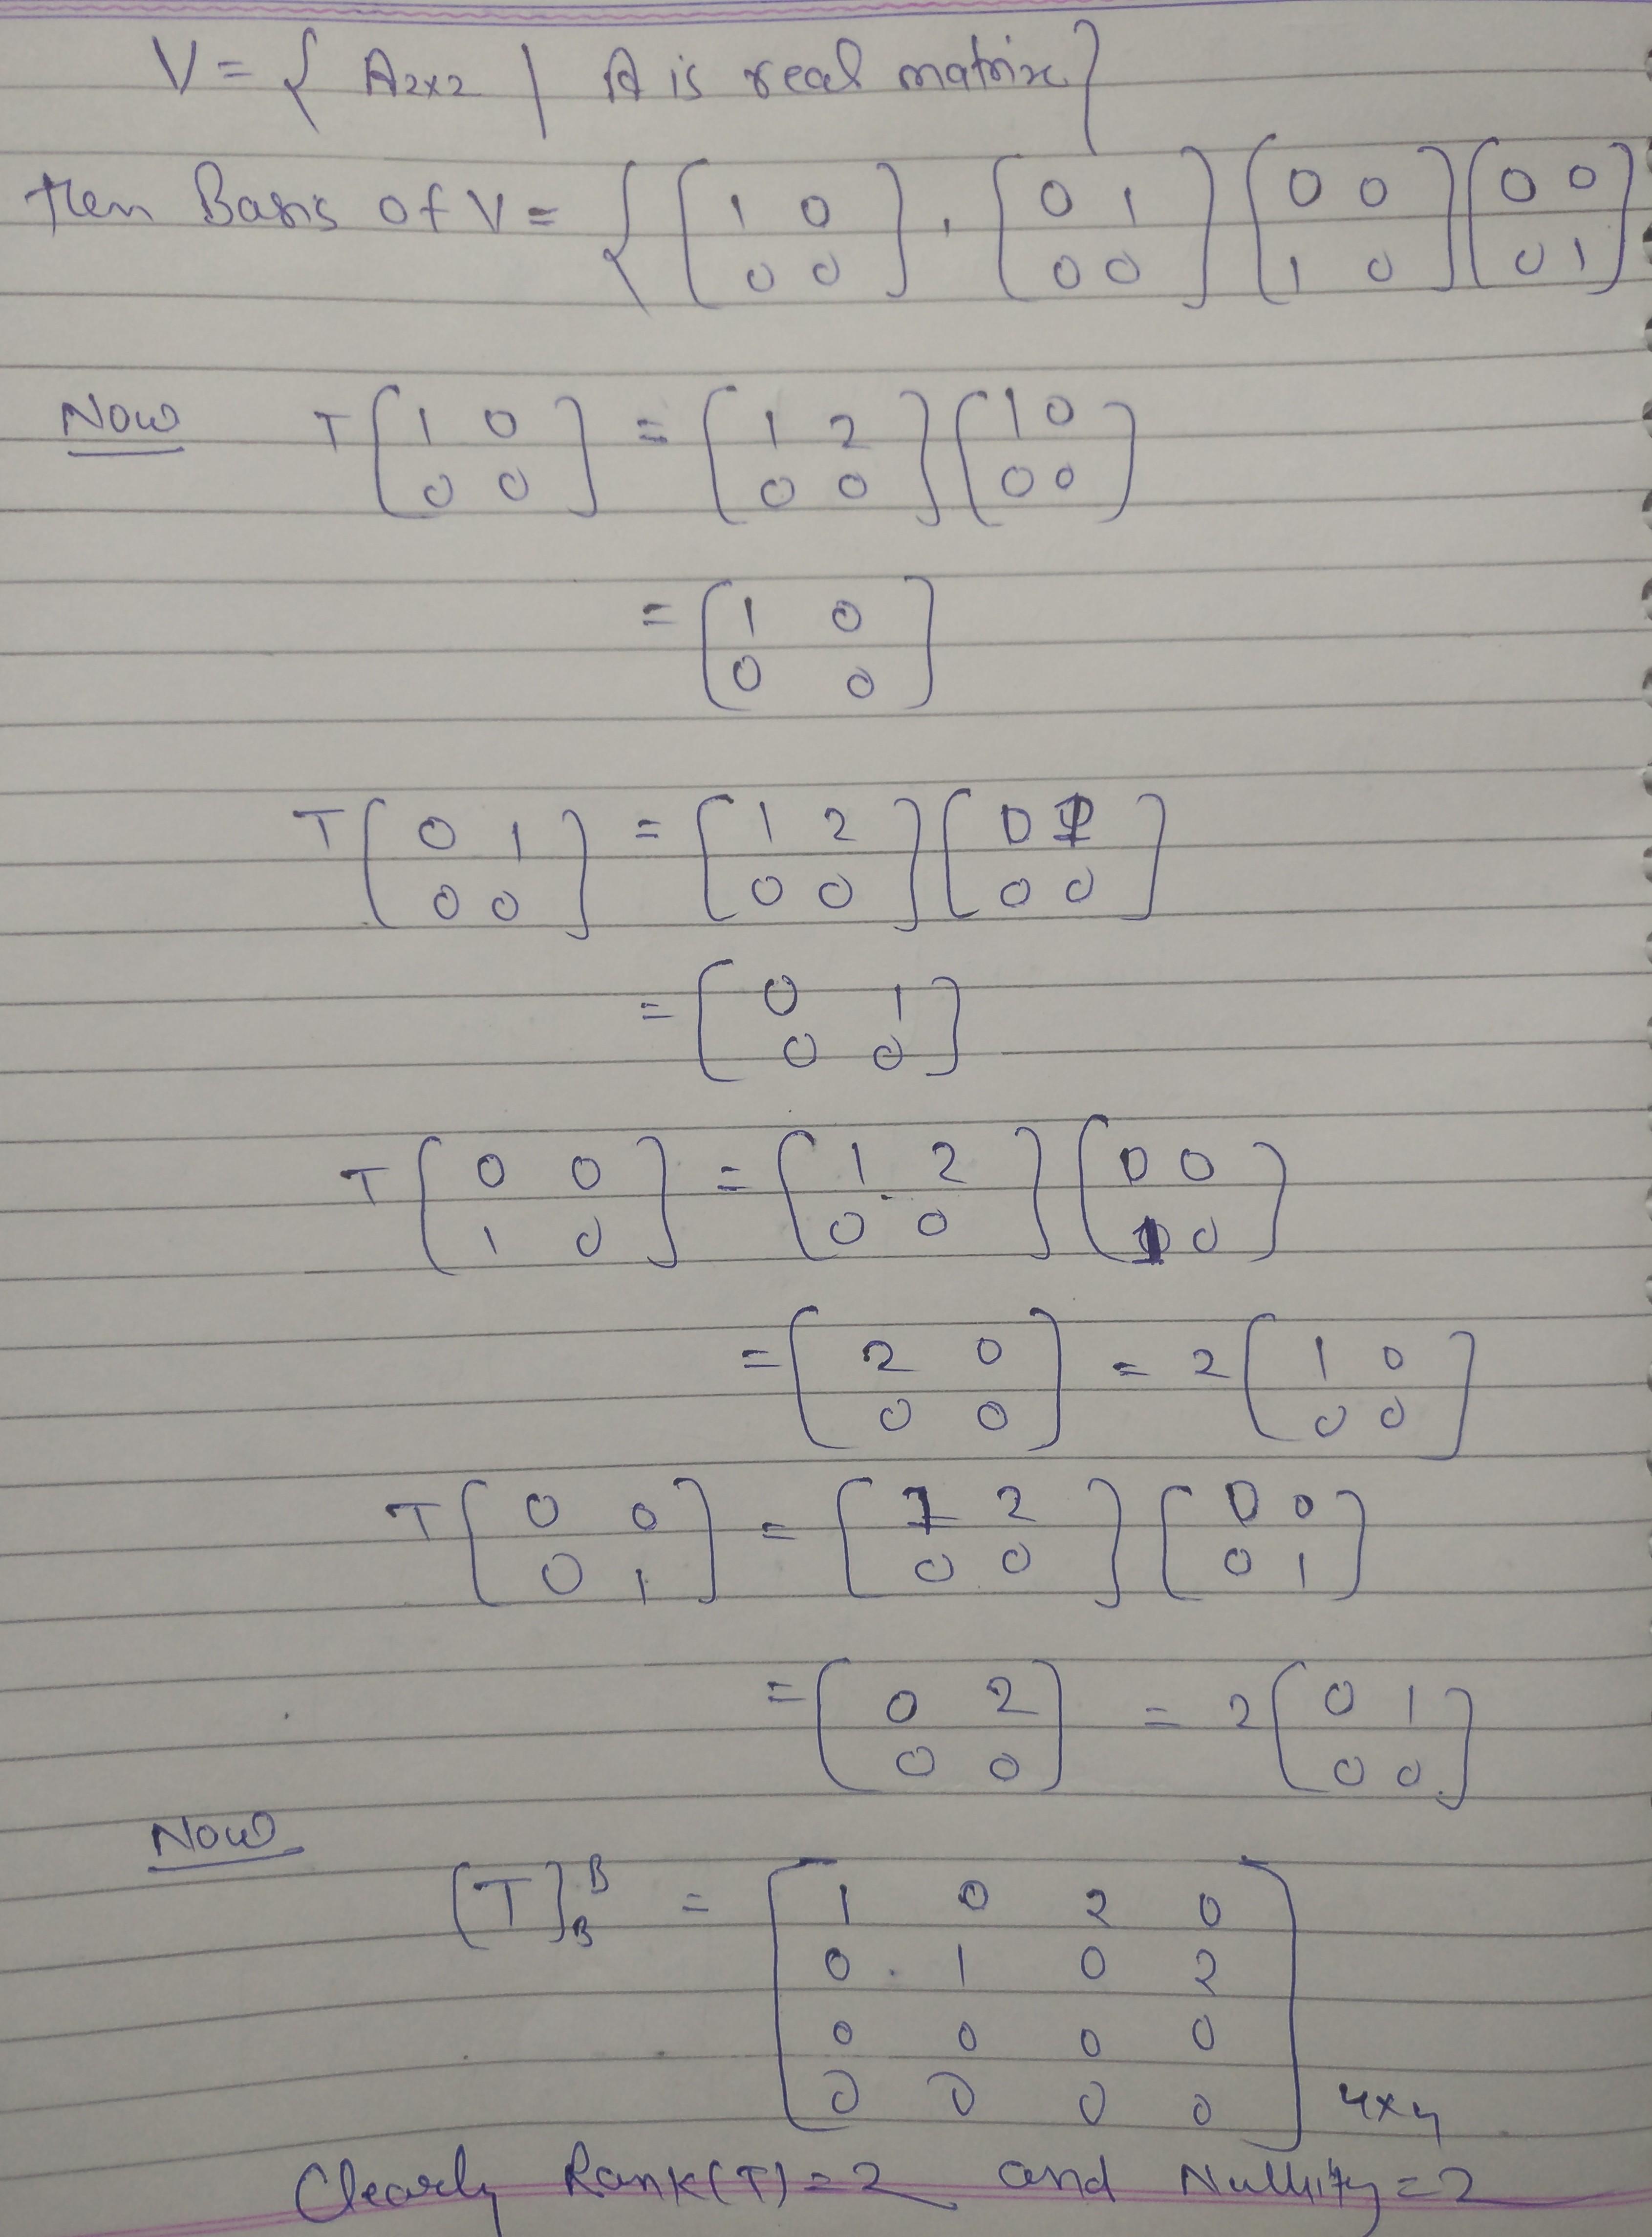 V = { A2×2 | A is real matrix}
then Basis of V = { [1 0; 0 0], [0 1; 0 0] [0 0; 1 0] [0 0; 0 1]
Now T[1 0; 0 0] = [1 2; 0 0] [1 0; 0 0]
= [1 0; 0 0]
T[0 1; 0 0] = [1 2; 0 0] [0 1; 0 0]
= [0 1; 0 0]
T[0 0; 1 0] = [1 2; 0 0] [0 0; 1 0]
= [2 0; 0 0] = 2[1 0; 0 0]
T[0 0; 0 1] = [1 2; 0 0] [0 0; 0 1]
= [0 2; 0 0] = 2[0 1; 0 0]
Now
[T]_B^B = [1 0 2 0; 0 1 0 2; 0 0 0 0; 0 0 0 0]4×4
Clearly Rank(T)=2 and Nullity=2